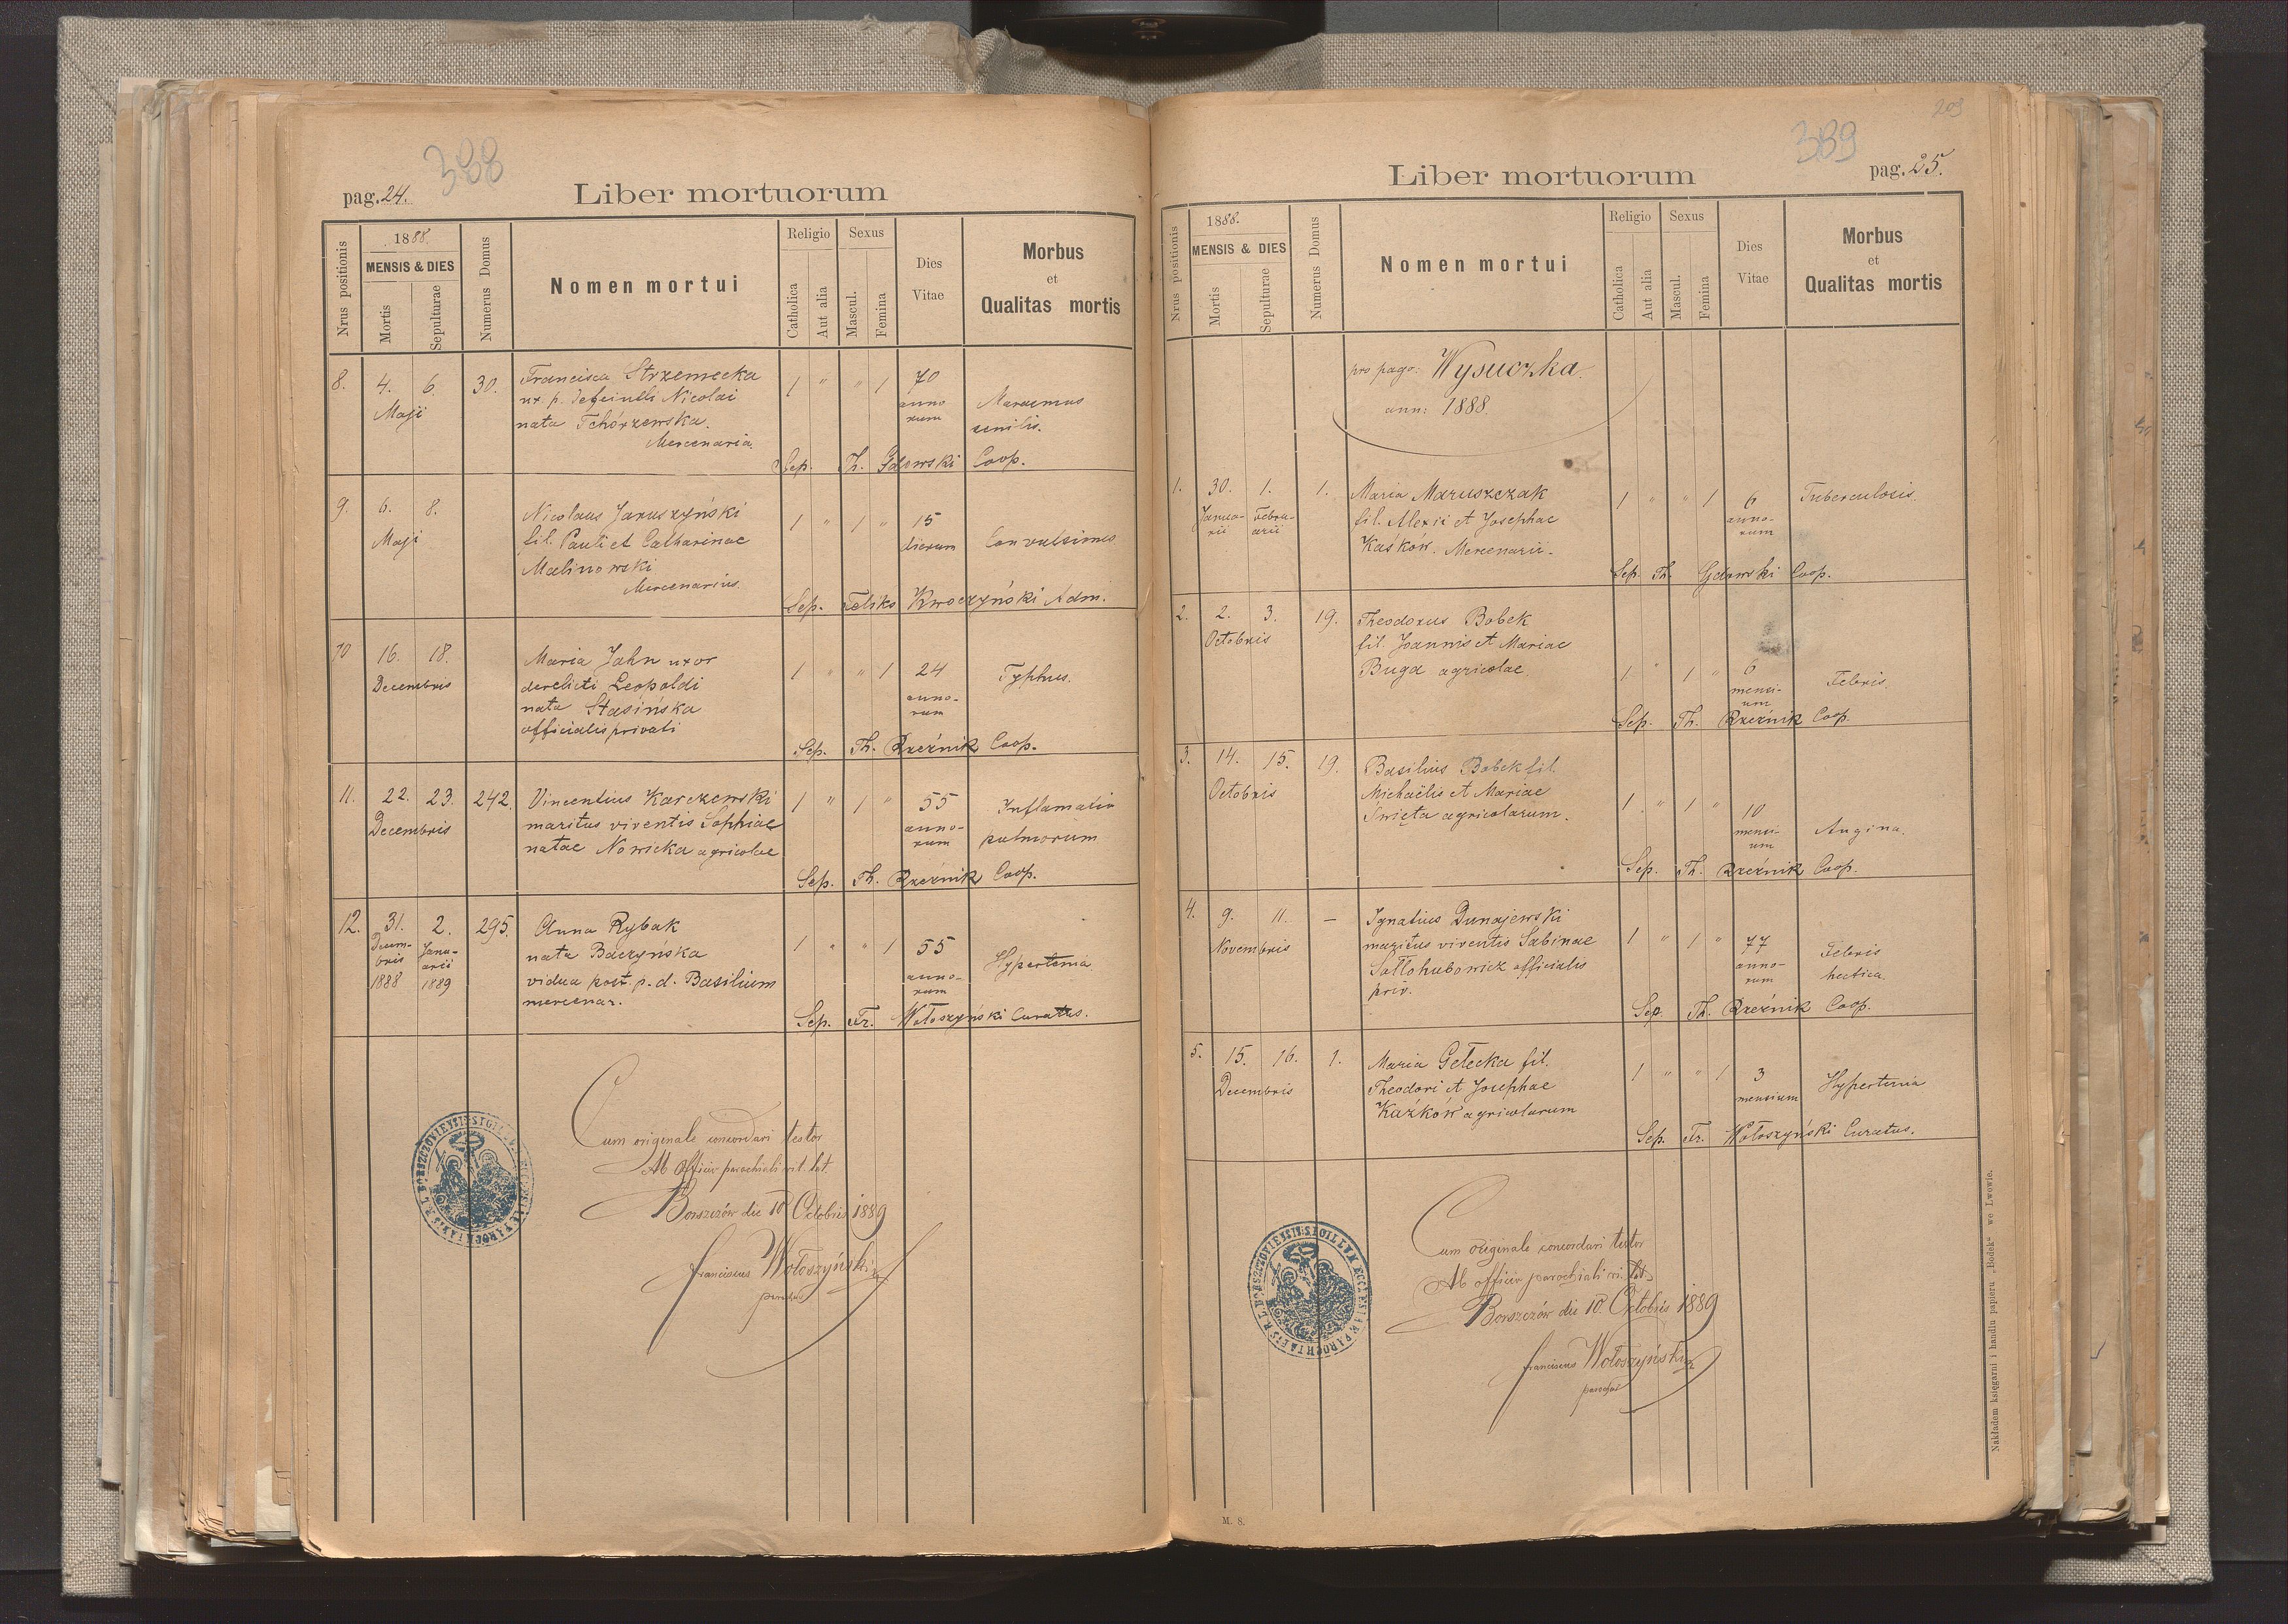 388
pag. 24.
Liber mortuorum
Nrus positionis
1888.
MENSIS & DIES
Mortis
Sepulturae
Numerus Domus
Nomen mortui
Religio
Catholica
Aut alia
Sexus
Mascul.
Femina
Dies Vitae
Morbus
et
Qualitas mortis
8. 4. 6. 30. Francisca Strzemecka 1 " " 1 70
Maji ux. p. defuncti Nicolai annorum Marasmus
nata Tchórzewska. senilis.
Mercenaria.
Sep. Th. Gdowski Coop.
9. 6. 8. Nicolaus Jaruszyński 1 " 1 " 15
Maji fil. Pauli et Catharinae dierum Convulsiones
Malinowski
Mercenarius.
Sep. Feliks Kwoczyński Adm.
10 16. 18. Maria Jahn uxor 1 " " 1 24 Typhus.
Decembris derelicti Leopoldi annorum
nata Stasińska
officialis privati
Sep. Th. Rzeźnik Coop.
11. 22. 23. 242. Vincentius Karczewski 1 " 1 " 55 Inflamatio
Decembris maritus viventis Sophiae annorum pulmorum
natae Nowicka agricolae
Sep. Th. Rzeźnik Coop.
12. 31. 2. 295. Anna Rybak 1 " " 1 55
Decembris Januarii nata Baczyńska annorum Hypertemia
1888 1889 vidua post. p. d. Basilium
mercenar.
Sep. Fr. Wołoszyński Curatus.
Cum originale concordari testor
Ab Officio parochiali rit. lat.
Borszczów die 10 Octobris 1889
Franciscus Wołoszyński
parochus
203
389
pag. 25.
Liber mortuorum
Nrus positionis
1888.
MENSIS & DIES
Mortis
Sepulturae
Numerus Domus
Nomen mortui
Religio
Catholica
Aut alia
Sexus
Mascul.
Femina
Dies Vitae
Morbus
et
Qualitas mortis
pro pago: Wysuczka.
ann: 1888.
1. 30. 1. 1. Maria Maruszczak 1 " " 1 6 Tuberculosis.
Januarii Februarii fil. Alexii et Josephae annorum
Kaśków. Mercenarii.
Sep. Th. Gdowski Coop.
2. 2. 3. 19. Theodorus Bobek
Octobris fil. Joannis et Mariae
Buga agricolae. 1 " 1 " 6 mensium Febris.
Sep. Th. Rzeźnik Coop.
3. 14. 15. 19. Basilius Bobek fil.
Octobris Michaëlis et Mariae
Święta agricolarum. 1 " 1 " 10 mensium Angina.
Sep. Th. Rzeźnik Coop.
4. 9. 11. — Ignatius Dunajewski
Novembris maritus viventis Sabinae 1 " 1 " 77 Febris
Sołłohubowicz officialis annorum hectica.
priv.
Sep. Th. Rzeźnik Coop.
5. 15. 16. 1. Maria Gełecka fil. 1 " " 1 3
Decembris Theodori et Josephae mensium Hypertemia
Kaźków agricolarum
Sep. Fr. Wołoszyński Curatus.
Cum originale concordari testor
Ab officio parochiali rit. lat.
Borszczów die 10. Octobris 1889
Franciscus Wołoszyński
parochus
Nakładem księgarni i handlu papieru „Bodek" we Lwowie.
M. 8.